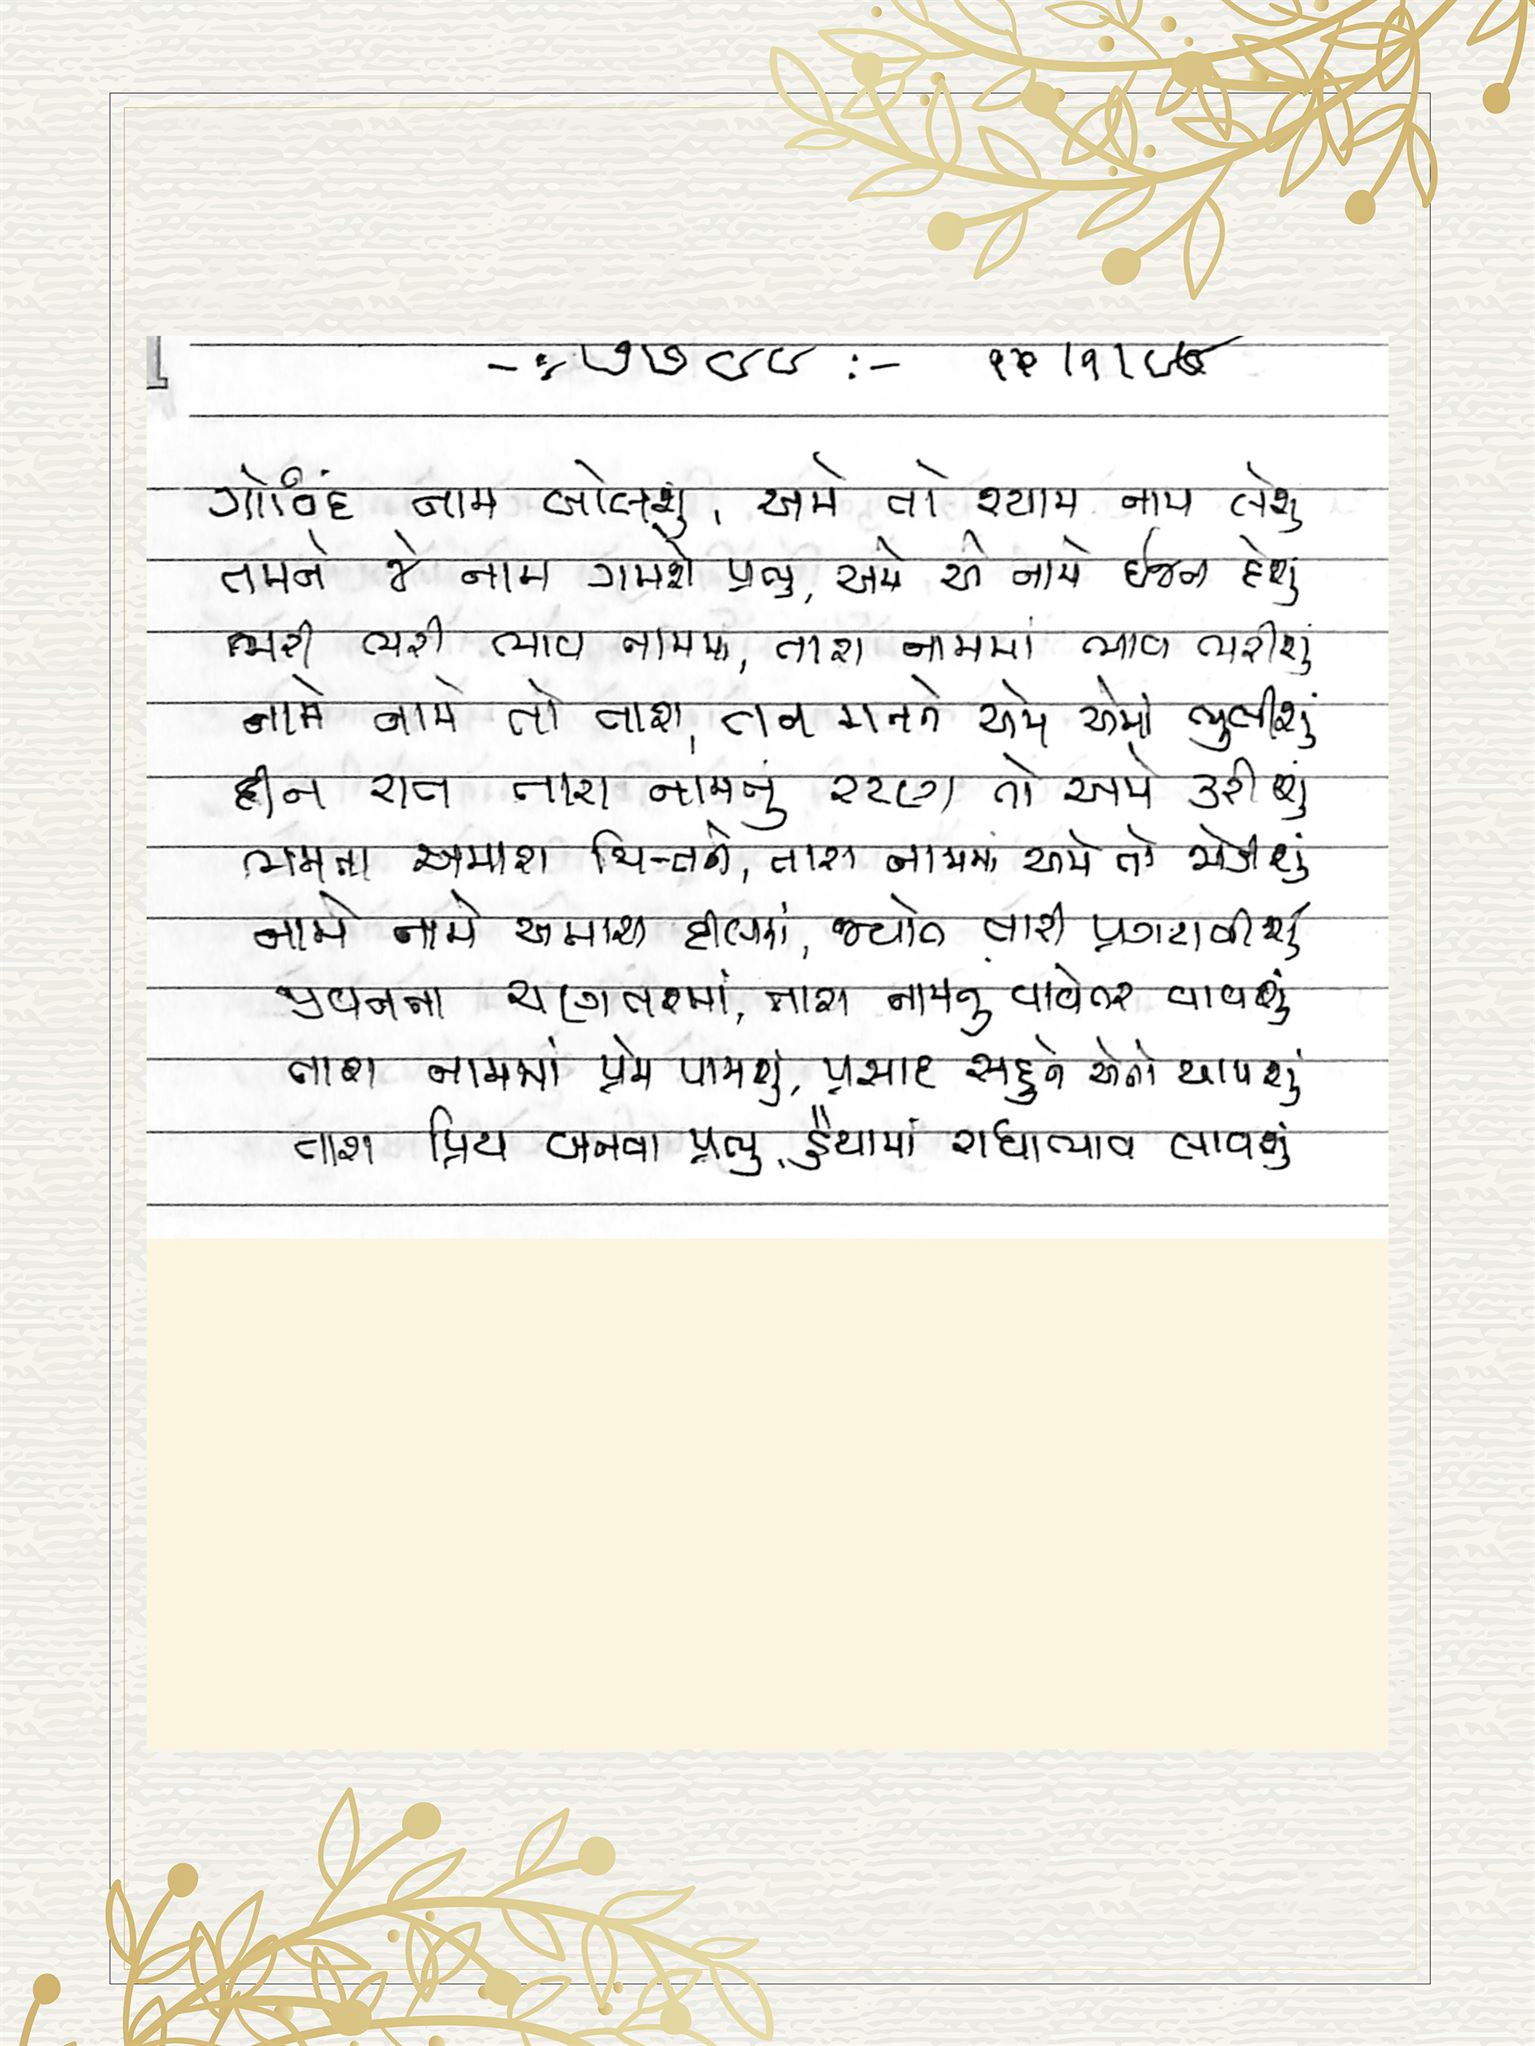 -: ૭૭૯૯ :- ૧૨/૧/૯૯
ગોવિંદ નામ બોલશું, અમે તો શ્યામ નામ લેશું
તમને જે નામ ગમશે પ્રભુ, અમે એ નામે ઈજન દેશું
ભરી ભરી ભાવ નામમાં, તારા નામમાં ભાવ ભરીશું
નામે નામે તો તારા, તન મનને અમે એમાં ભુલીશું
દીન રાત તારા નામનું રટણ તો અમે કરીશું
ભમતા અમારા ચિત્તને, તારા નામમાં અમે તો જોડીશું
નામે નામે અમારા દીલમાં, જ્યોત તારી પ્રગટાવીશું
જીવનના ચણતરમાં, તારા નામનું વાવેતર વાવશું
તારા નામમાં પ્રેમ પામશું, પ્રસાદ સહુને એનો આપશું
તારા પ્રિય બનવા પ્રભુ, હૈયામાં રાધાભાવ લાવશું